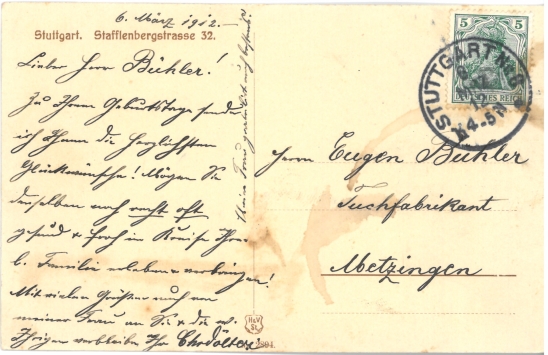 6. März 1912.
Stuttgart. Stafflenbergstrasse 32.
Lieber Herr Bühler!
Zu Ihrem Geburtstage sende
ich Ihnen die herzlichsten
Glückwünsche! Mögen Sie
denselben noch recht oft
gesund & froh im Kreise Ihrer
l. Familie erleben & verbringen!
Mit vielen Grüßen auch von
meiner Frau an Sie & die w.
Ihrigen verbleibe Ihr
Meine Frau
5 5
DEUTSCHES REICH
STUTTGART
MRZ
12
4-5 N
Herrn Eugen Bühler
Tuchfabrikant
Metzingen